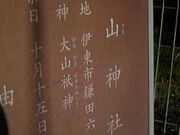 山神社
地 伊東市鎌田六
神 大山祇神
日 十月十五日
由